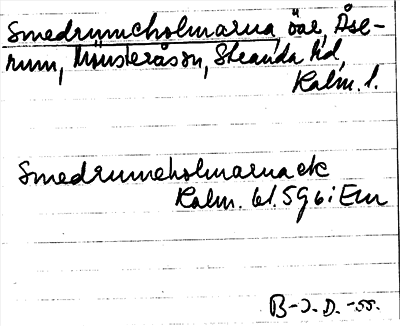 Smedrumeholmarna, öar, Åse-
rum, Mönsteråsön, Stranda hd,
Kalm. l.
Smedrumeholmarna ek
Kalm. bl. 59 6 i Em
B-J. D. -55.